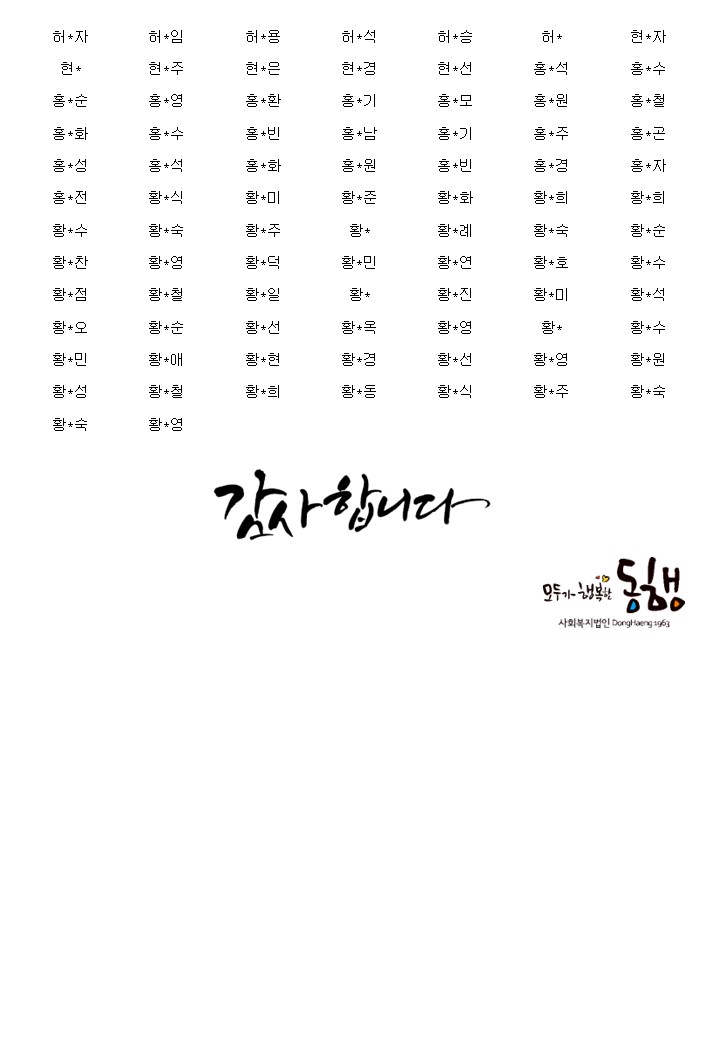 허*자 허*임 허*용 허*석 허*승 허* 현*자
현* 현*주 현*은 현*경 현*선 홍*석 홍*수
홍*순 홍*영 홍*환 홍*기 홍*모 홍*원 홍*철
홍*화 홍*수 홍*빈 홍*남 홍*기 홍*주 홍*곤
홍*성 홍*석 홍*화 홍*원 홍*빈 홍*경 홍*자
홍*전 황*식 황*미 황*준 황*화 황*희 황*희
황*수 황*숙 황*주 황* 황*례 황*숙 황*순
황*찬 황*영 황*덕 황*민 황*연 황*호 황*수
황*점 황*철 황*일 황* 황*진 황*미 황*석
황*오 황*순 황*선 황*옥 황*영 황* 황*수
황*민 황*애 황*현 황*경 황*선 황*영 황*원
황*성 황*철 황*희 황*동 황*식 황*주 황*숙
황*숙 황*영
감사합니다
모두가 행복한 동행
사회복지법인 DongHaeng 1963